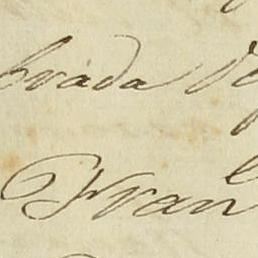 brada De
Fran